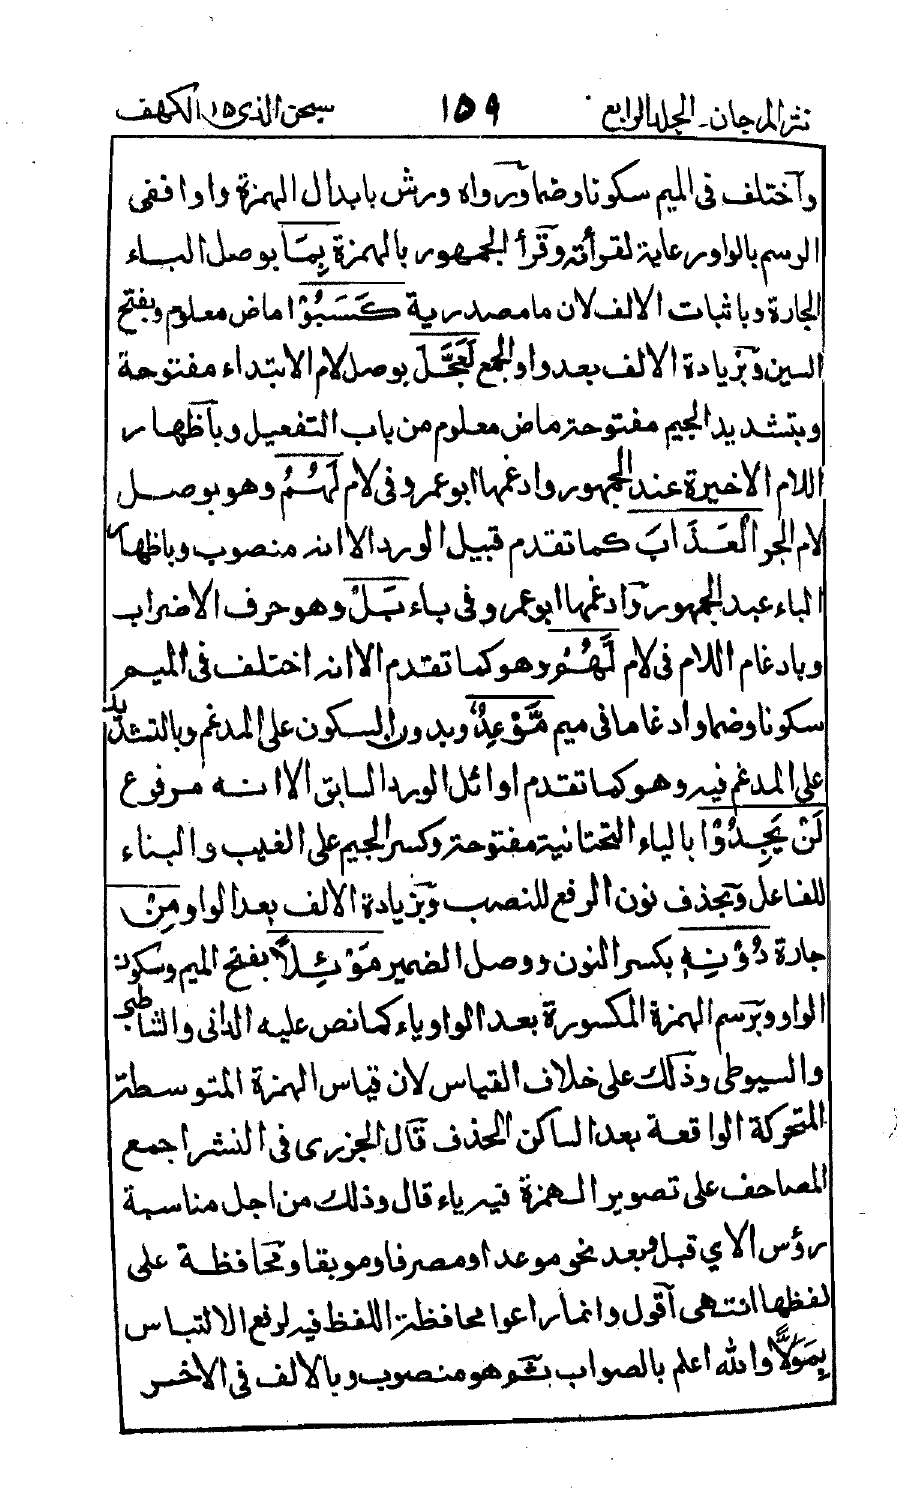 نثر المرجان۔ الجلد الرابع ١٥٩ سبحن الذى ١٥ الكهف
وآختلف فى الميم سكونا وضما وَرواه ورش بابدال الهمزة واوا ففى
الرسم بالواو رعاية لقرأته وقَرأ الجمهور بالهمزة بِمَا بوصل الباء
الجارة وباثبات الالف لان ما مصدرية كَسَبُوْا ماض معلوم وبفتح
السين وَبزيادة الالف بعد واو الجمع لَعَجَّلَ بوصل لام الابتداء مفتوحة
وبتشديد الجيم مفتوحة ماض معلوم من باب التفعيل وبآظهار
اللام الاخيرة عند الجمهور وادغمها ابو عمرو فى لام لَهُمُ وهو بوصل
لام الجر الْعَذَابَ كما تقدم قبيل الورد الا انه منصوب وباظهار
الباء عند الجمهور وَادغمها ابو عمرو فى باء بَلْ وهو حرف الاضراب
وبادغام اللام فى لام لَّهُمْ وهو كما تقدم الا انه اختلف فى الميم
سكونا وضما وادغاما فى ميم مَّوْعِدٌ وبدون السكون على المدغم وبالتشديد
على المدغم فيه وهو كما تقدم اوائل الورد السابق الا انه مرفوع
لَنْ يَجِدُوْا بالياء التحتانية مفتوحة وكسر الجيم على الغيب والبناء
للفاعل وَبحذف نون الرفع للنصب وَبزيادة الالف بعد الواو مِنْ
جارة دُوْنِهٖ بكسر النون ووصل الضمير مَوْئِلًا بفتح الميم وسكون
الواو وَبرسم الهمزة المكسورة بعد الواو ياء كما نص عليه الدانى والشاطبى
والسيوطى وذلك على خلاف القياس لان قياس الهمزة المتوسطة
المتحركة الواقعة بعد الساكن الحذف قال الجزرى فى النشر اجمع
المصاحف على تصوير الهمزة فيه ياء قال وذلك من اجل مناسبة
رؤس الاي قبل وبعد نحو موعدا ومصرفا وموبقا ومحافظة على
لفظها انتهى آقول وانما راعوا محافظة اللفظ فيه لرفع الالتباس
بِمَوَلًّا والله اعلم بالصواب ثم هو منصوب وبالالف فى الاخر